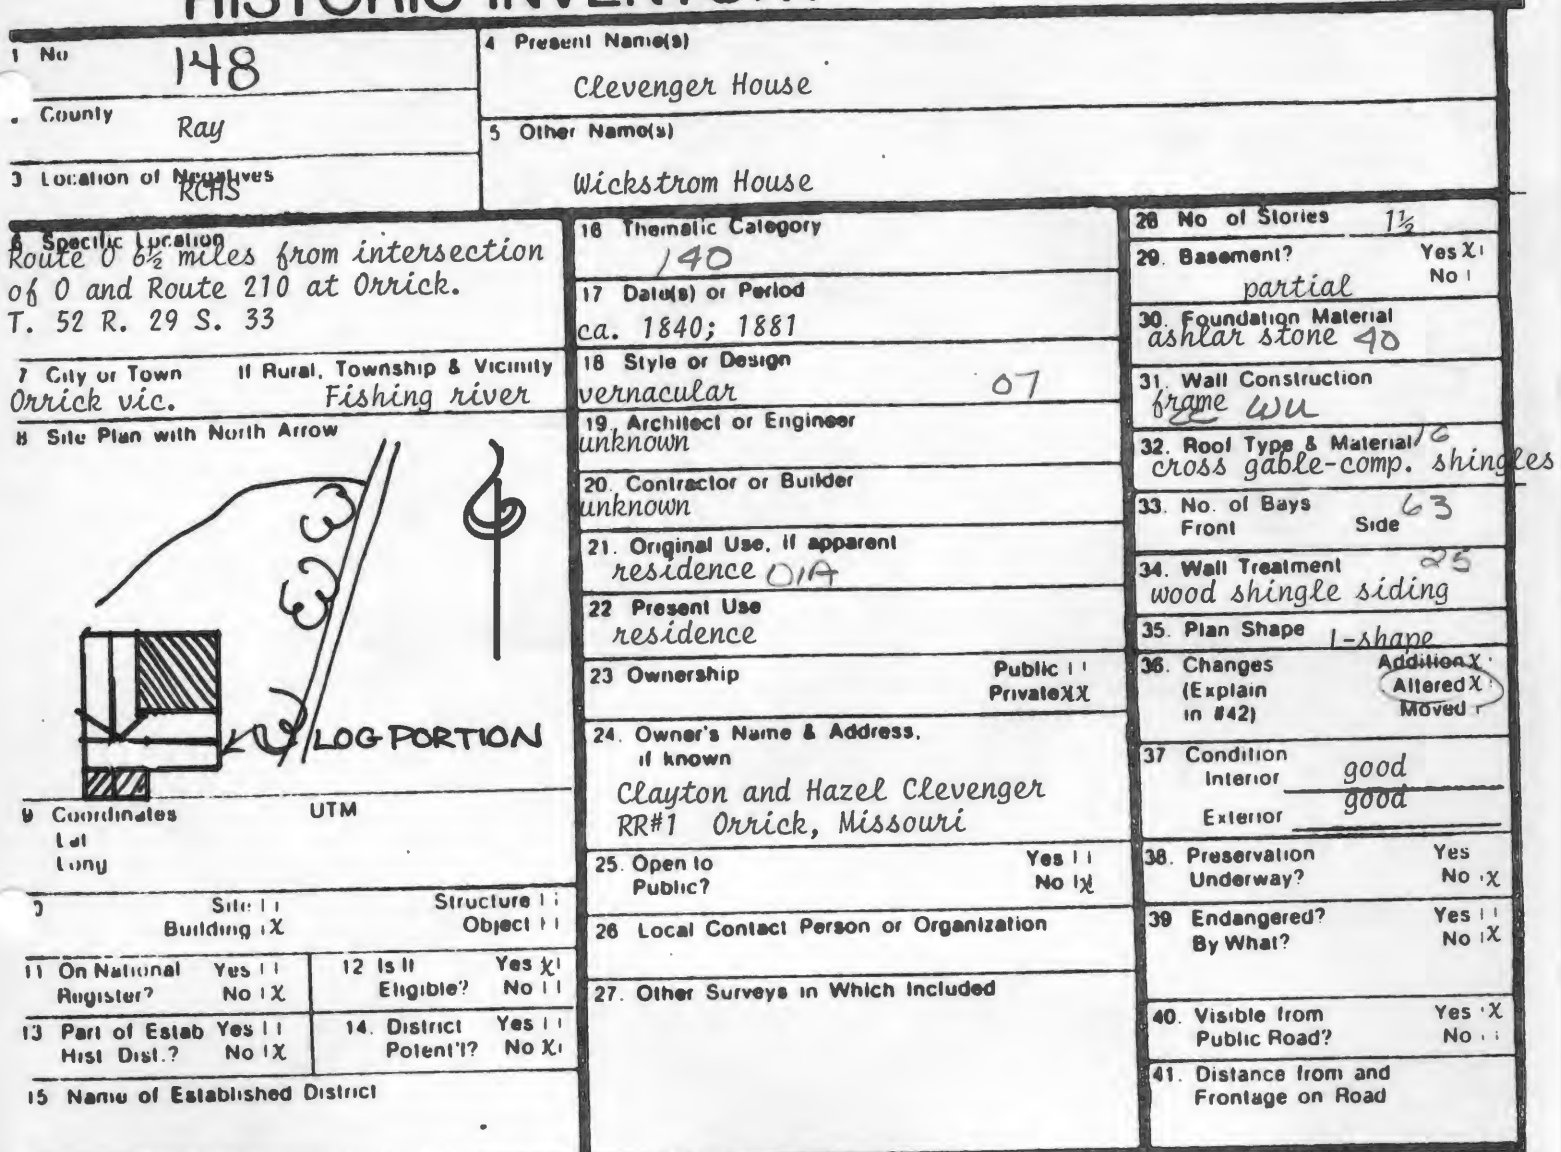 HISTORIC INVENTORY
1 No
148
County
Ray
3 Location of Negatives
RCHS
4 Present Name(s)
Clevenger House
5 Other Name(s)
Wickstrom House
6 Specific Location
Route O 6½ miles from intersection
of O and Route 210 at Orrick.
T. 52 R. 29 S. 33
7 City or Town If Rural, Township & Vicinity
Orrick vic. Fishing river
8 Site Plan with North Arrow
LOG PORTION
9 Coordinates UTM
Lat
Long
Site Structure
Building X Object
11 On National Yes
Register? No X
12 Is It Yes X
Eligible? No
13 Part of Estab Yes
Hist Dist.? No X
14. District Yes
Potent'l? No X
15 Name of Established District
16 Thematic Category
140
17 Date(s) or Period
ca. 1840; 1881
18 Style or Design
vernacular 07
19. Architect or Engineer
unknown
20. Contractor or Builder
unknown
21. Original Use, if apparent
residence 01A
22 Present Use
residence
23 Ownership Public
Private XX
24. Owner's Name & Address,
if known
Clayton and Hazel Clevenger
RR#1 Orrick, Missouri
25. Open to Yes
Public? No X
26 Local Contact Person or Organization
27. Other Surveys in Which Included
28 No of Stories 1½
29. Basement? Yes X
partial No
30. Foundation Material
ashlar stone 40
31. Wall Construction
frame WU
32. Roof Type & Material
cross gable-comp. shingles
33. No. of Bays 63
Front Side
34. Wall Treatment 25
wood shingle siding
35. Plan Shape L-shape
36. Changes Addition X
(Explain Altered X
in #42) Moved
37 Condition
Interior good
good
Exterior
38. Preservation Yes
Underway? No X
39 Endangered? Yes
By What? No X
40. Visible from Yes X
Public Road? No
41. Distance from and
Frontage on Road